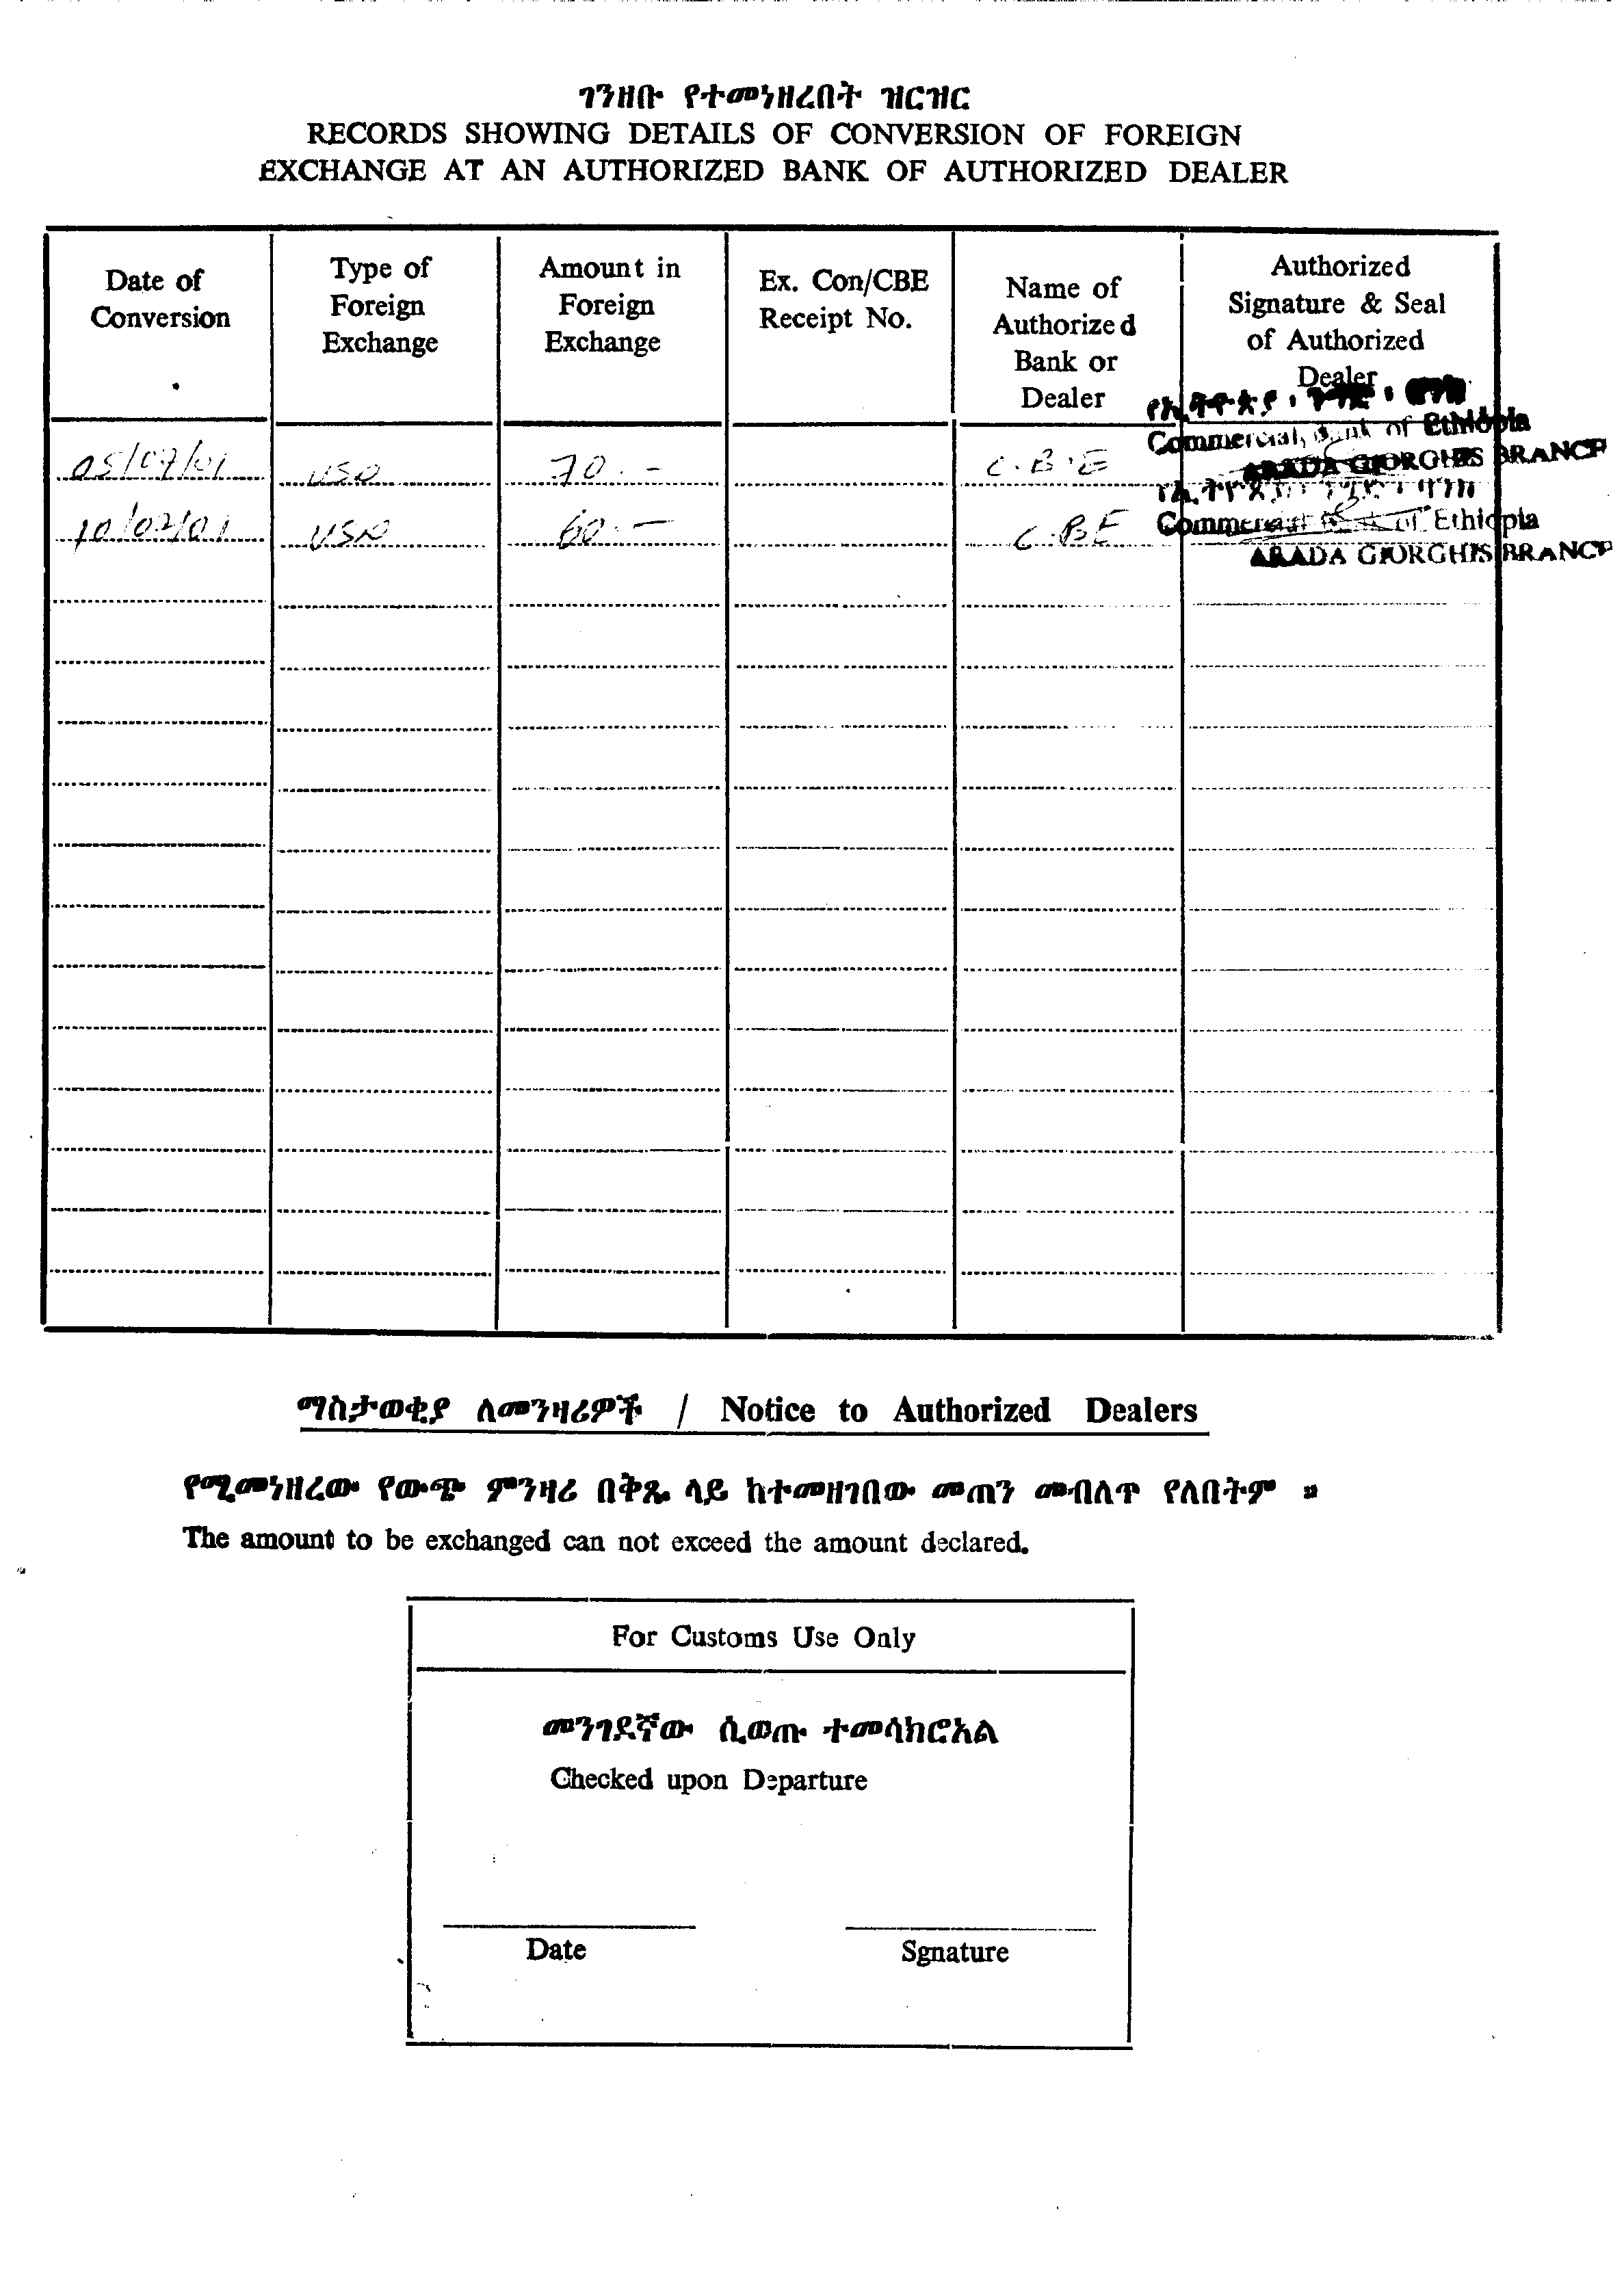 ገንዘቡ የተመነዘረበት ዝርዝር
RECORDS SHOWING DETAILS OF CONVERSION OF FOREIGN
EXCHANGE AT AN AUTHORIZED BANK OF AUTHORIZED DEALER
Date of Conversion
Type of Foreign Exchange
Amount in Foreign Exchange
Ex. Con/CBE Receipt No.
Name of Authorized Bank or Dealer
Authorized Signature & Seal of Authorized Dealer
05/07/01 USD 70.- C.B.E
Commercial Bank of Ethiopia
ARADA GIORGHIS BRANCH
10/07/01 USD 60.- C.BE
Commercial Bank of Ethiopia
ARADA GIORGHIS BRANCH
ማስታወቂያ ለመንዛሪዎች / Notice to Authorized Dealers
የሚመነዘረው የውጭ ምንዛሪ በቅጹ ላይ ከተመዘገበው መጠን መብለጥ የለበትም ።
The amount to be exchanged can not exceed the amount declared.
For Customs Use Only
መንገደኛው ሲወጡ ተመሳክሮአል
Checked upon Departure
Date Sgnature